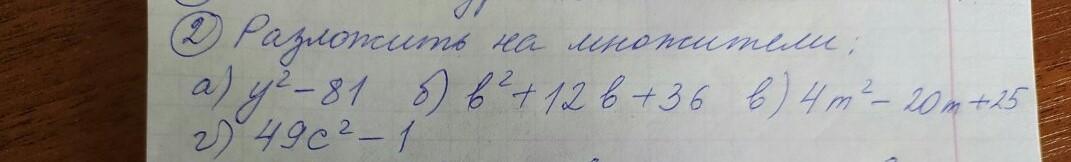 ② Разложить на множители:
а) y² − 81 б) b² + 12b + 36 в) 4m² − 20m + 25
г) 49c² − 1